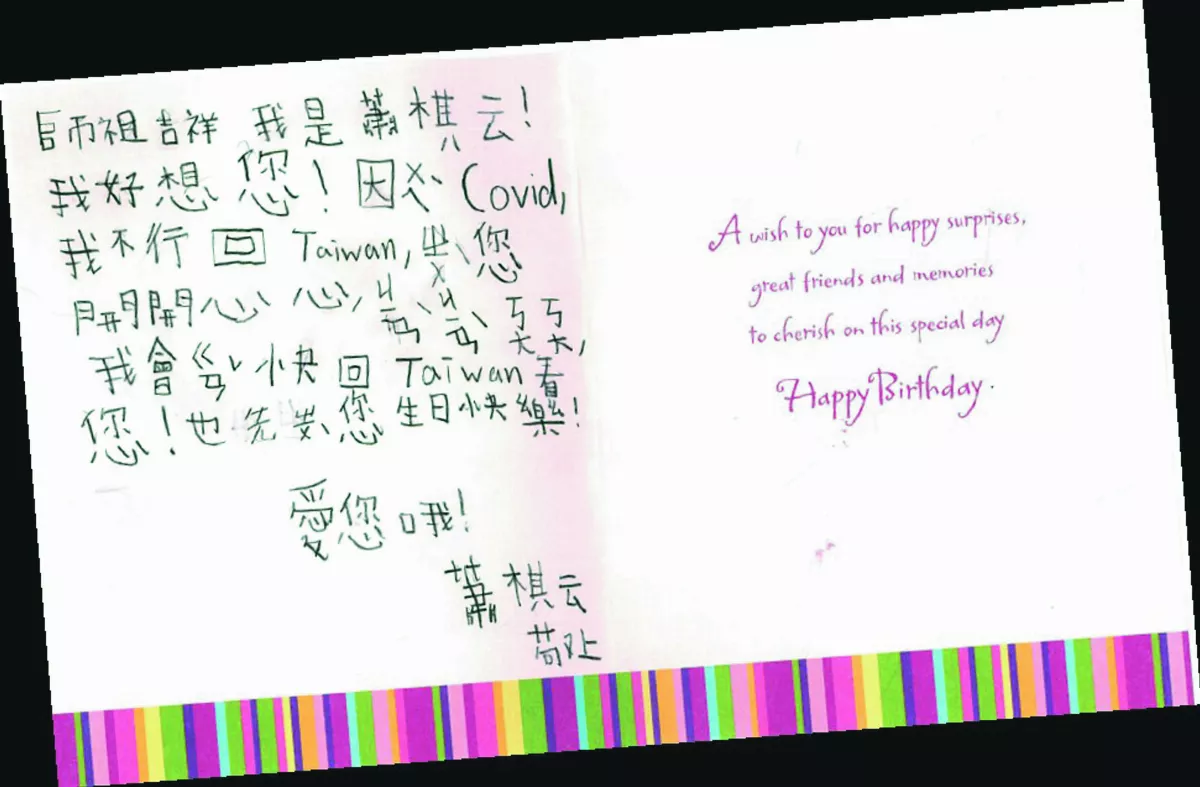 師祖吉祥 我是 蕭棋云!
我好想您! 因ㄨㄟˋ Covid,
我不行回 Taiwan, ㄓㄨˋ您
開開心心, ㄐㄧㄢˋ ㄐㄧㄢˋ ㄎㄤ ㄎㄤ,
我會ㄍㄢˇ快回 Taiwan 看
您! 也先ㄓㄨˋ您 生日快樂!
愛您哦!
蕭棋云
敬上
A wish to you for happy surprises,
great friends and memories
to cherish on this special day
Happy Birthday.